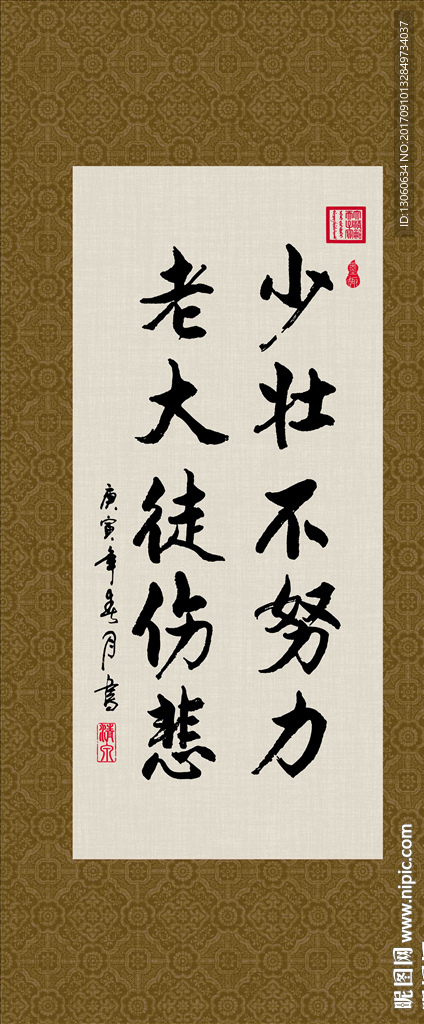 少壮不努力
老大徒伤悲
庚寅年春月书
清泉
ID:13060634 NO:20170910132849734037
昵图网 www.nipic.com